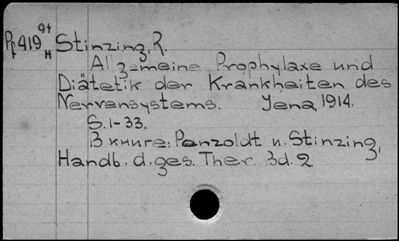 Pf 419 9+
H
Stinzing, R.
Alzemeine Prophylaxe und
Diätetik der Krankheiten des
Nervensystems. Jena, 1914.
S. 1-33.
В книге: Penzoldt u. Stinzing,
Handb. d. ges. Ther. Bd. 2